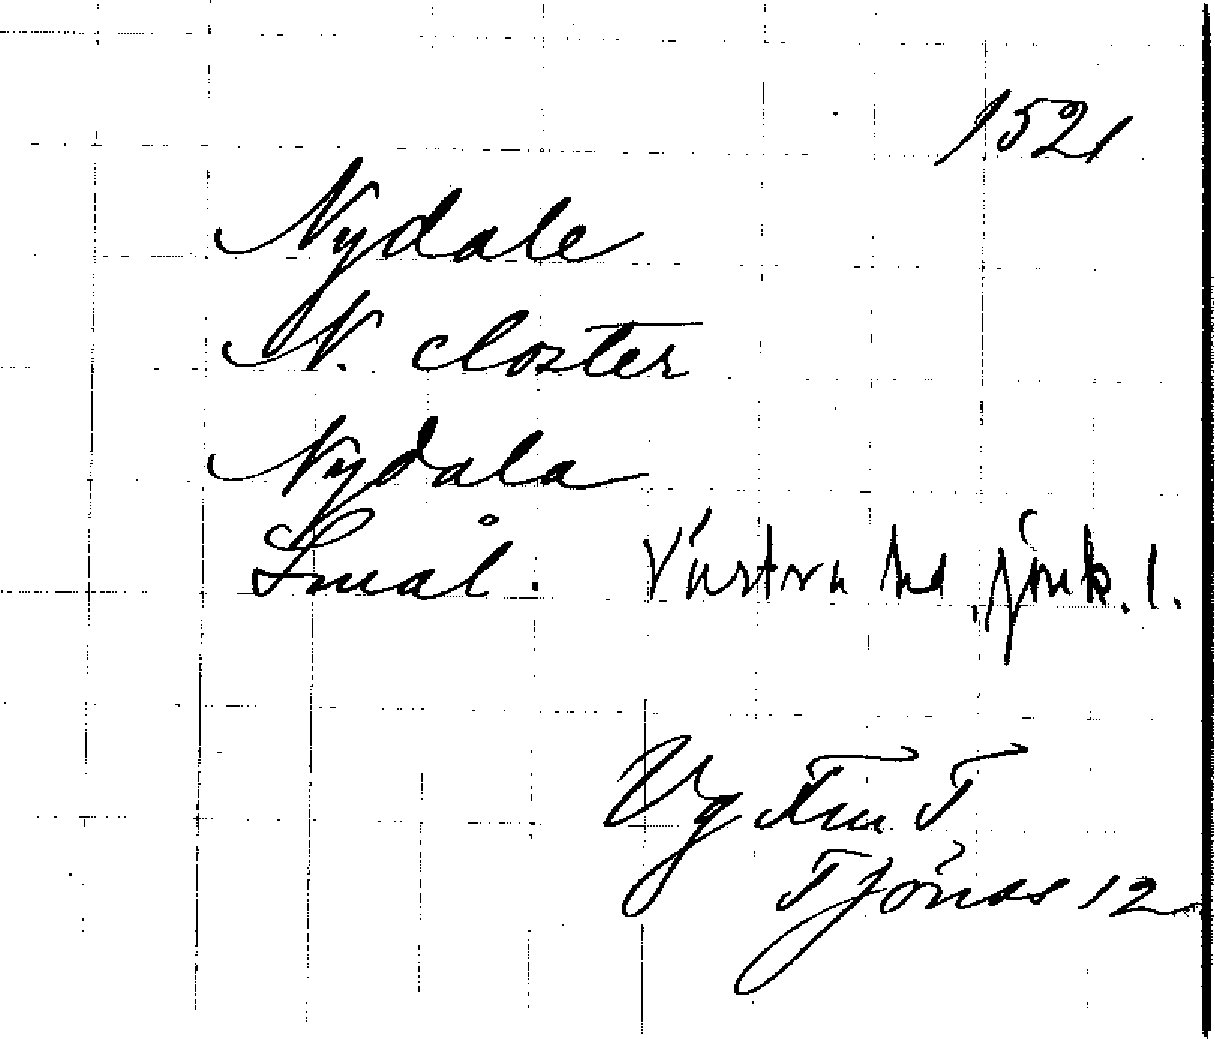 1521
Nydale
N. closter
Nydala
Smål. Västra hd, Jönk. l.
Vg
Tjänas 12